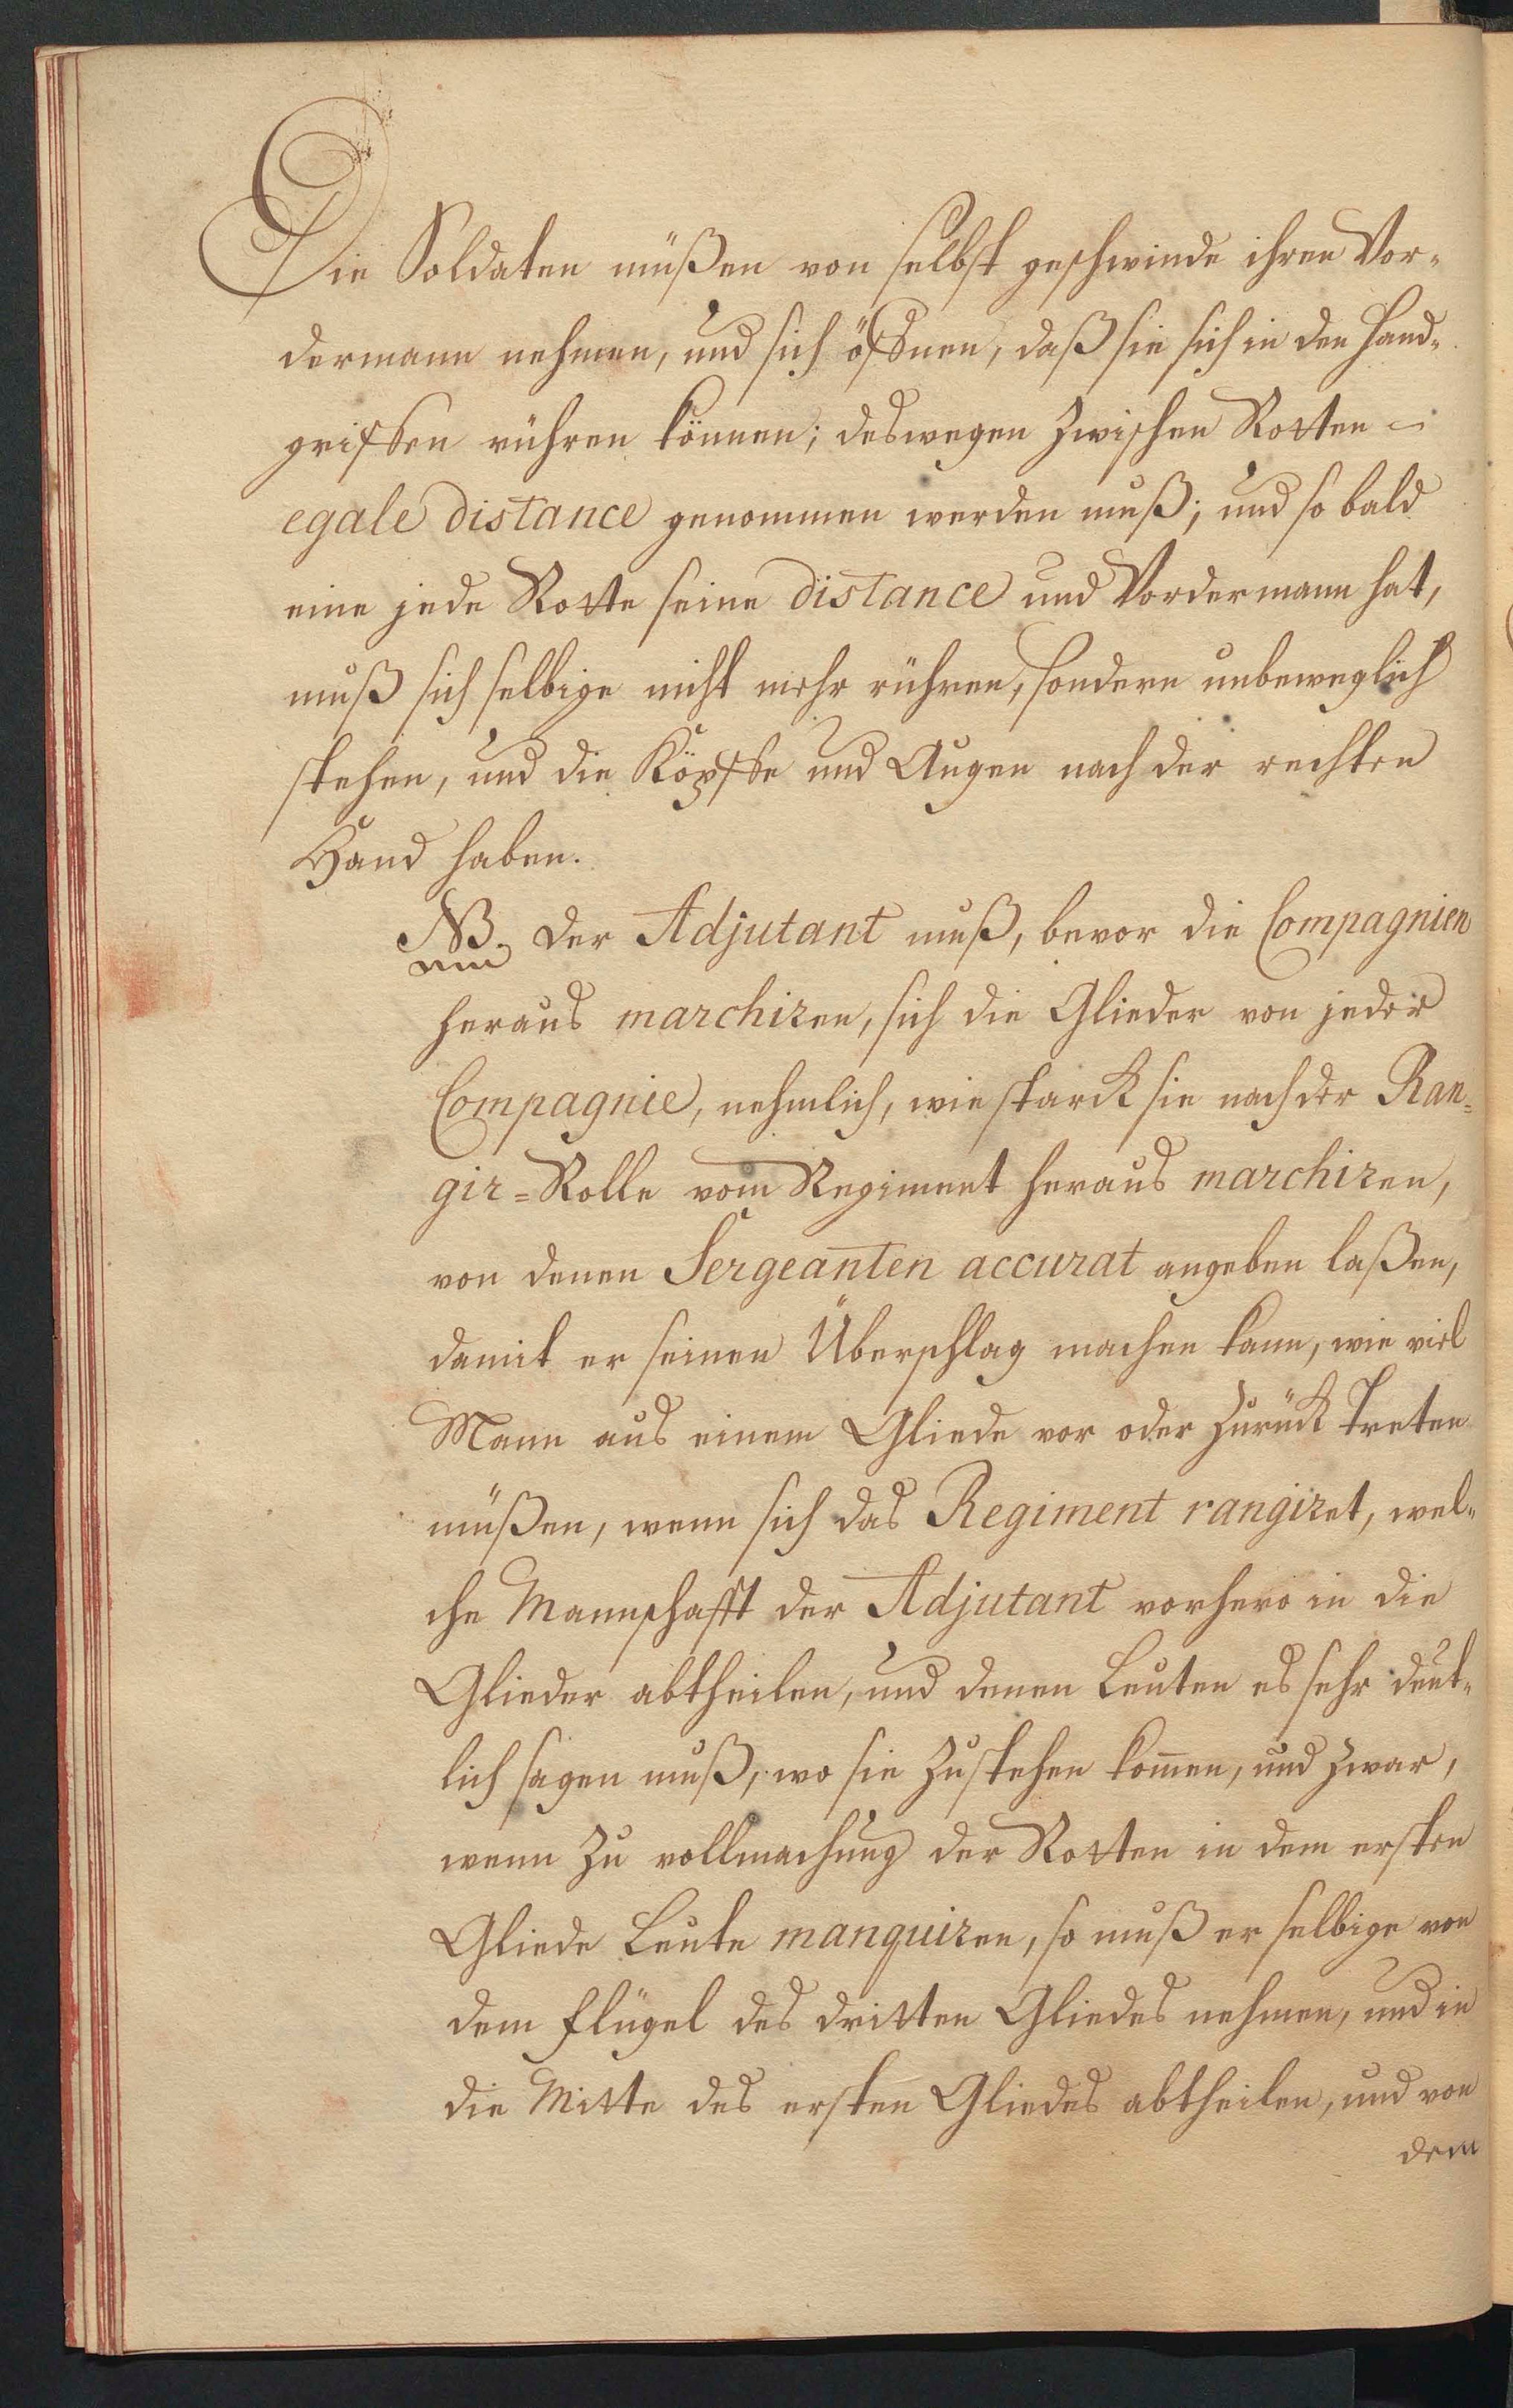 Die Soldaten müßen von selbst geschwinde ihren Vor-
dermann nehmen, und sich öffnen, daß sie sich in den Hand-
griffen rühren können; deswegen zwischen Rotten -
egale distance genommen werden muß; und so bald
eine jede Rotte seine distance und Vordermann hat,
muß sich selbige nicht mehr rühren, sondern unbeweglich
stehen, und die Köpffe und Augen nach der rechten
Hand haben.
NB. Der Adjutant muß, bevor die Compagnien
heraus marchiren, sich die Glieder von jeder
Compagnie, nehmlich, wie starck sie nach der Ran=
gir=Rolle vom Regiment heraus marchiren,
von denen Sergeanten accurat angeben laßen,
damit er seinen Überschlag machen kann, wie viel
Mann aus einem Gliede vor oder zurück treten
müßen, wenn sich das Regiment rangiret, wel-
che Mannschafft der Adjutant vorhero in die
Glieder abtheilen, und denen Leuten es sehr deut-
lich sagen muß, wo sie zu stehen kom̅en, und zwar,
wenn zu vollmachung der Rotten in dem ersten
Gliede Leute manquiren, so muß er selbige von
dem Flügel des dritten Gliedes nehmen, und in
die Mitte des ersten Gliedes abtheilen, und von
dem